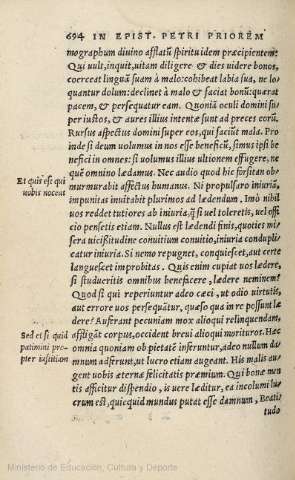 694 IN EPIST. PETRI PRIORĒM
mographum diuino afflatu spiritu idem præcipientem:
Qui uult, inquit, uitam diligere & dies uidere bonos,
coerceat linguā suam à malo: cohibeat labia sua, ne lo
quantur dolum: declinet à malo & faciat bonū: quærat
pacem, & persequatur eam. Quoniā oculi domini su
per iustos, & aures illius intētæ sunt ad preces eorū.
Rursus aspectus domini super eos, qui faciūt mala. Pro
inde si deum uolumus in nos esse beneficū, simus ipsi be
nefici in omnes: si uolumus illius ultionem effugere, ne
Et quis est qui
uobis noceat
quē omnino lædamus. Nec audio quod hic forsitan ob
murmurabit affectus humanus. Ni propulsaro iniuriā,
impunitas inuitabit plurimos ad lædendum. Imò nihil
uos reddet tutiores ab iniuria, ꝗ̄ si uel toleretis, uel offi
cio pensetis etiam. Nullus est lædendi finis, quoties mi
sera uicissitudine conuitium conuitio, iniuria condupli
catur iniuria. Si nemo repugnet, conquiescet, aut certe
languescet improbitas. Quis enim cupiat uos lædere,
si studueritis omnibus benefacere, lædere neminem?
Quod si qui reperiuntur adeo cæci, ut odio uirtutis,
aut errore uos persequātur, quæso qua in re possunt læ
dere? Auferant pecuniam mox alioqui relinquendam,
Sed et si quid
patimini pro-
pter iustitiam
affligāt corpus, occident breui alioqui morituros. Hæc
omnia quoniam ob pietatē inferuntur, adeo nullum da
mnum adferunt, ut lucro etiam augeant. His malis au
gent uobis æternæ felicitatis præmium. Qui bonæ men
tis afficitur dispendio, is uere læditur, ea incolumi lu
crum est, quicquid mundus putat esse damnum, Beati
tudo
Ministerio de Educación, Cultura y Deporte